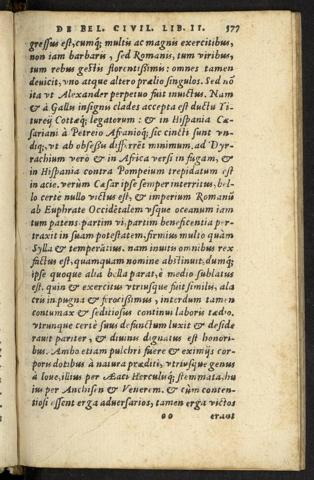 DE BEL. CIVIL. LIB. II. 577
gressus est, cumq; multis ac magnis exercitibus,
non iam barbaris, sed Romanis, tum viribus,
tum rebus gestis florentissimis: omnes tamen
deuicit, vno atque altero prælio singulos. Sed nõ
ita vt Alexander perpetuo fuit inuictus. Nam
& à Gallis insignis clades accepta est ductu Ti-
turij Cottæq; legatorum: & in Hispania Cæ-
sariani à Petreio Afranioq; sic cincti sunt vn-
diq; vt ab obsessis differrēt minimum. ad Dyr-
rachium verò & in Africa versi in fugam, &
in Hispania contra Pompeium trepidatum est
in acie. verùm Cæsar ipse semper interritus, bel-
lo certè nullo victus est, & imperium Romanū
ab Euphrate Occidētalem vsque oceanum iam
tum patens partim vi, partim beneficentia per-
traxit in suam potestatem, firmius multo quàm
Sylla & temperatius. nam inuitis omnibus rex
factus est, quamquam nomine abstinuit. dumq;
ipse quoque alia bella parat, è medio sublatus
est. quin & exercitus vtriusque fuit similis, ala
cris in pugna & ferocissimus, interdum tamen
contumax & seditiosus continui laboris tædio.
vtrunque certè suus defunctum luxit & deside
rauit pariter, & diuinis dignatus est honori-
bus. Ambo etiam pulchri fuere & eximijs cor-
poris dotibus à natura præditi, vtriusque genus
à Ioue, illius per Æaci Herculisq; stemmata, hu
ius per Anchisen & Venerem. & cùm conten-
tiosi essent erga aduersarios, tamen erga victos
oo erant